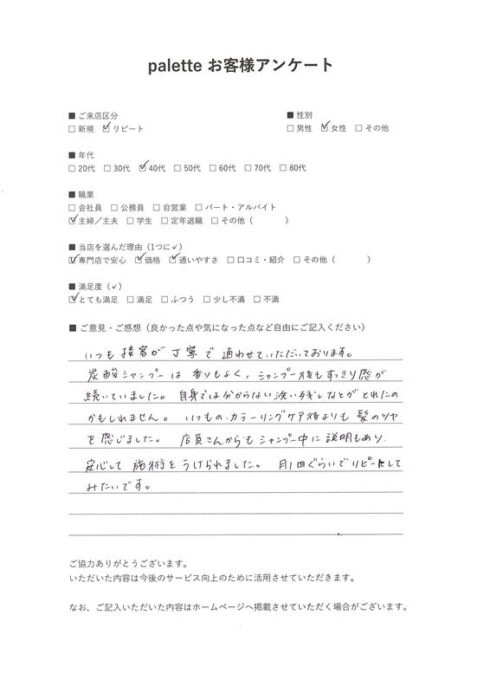 palette お客様アンケート
■ ご来店区分
□ 新規 ☑ リピート
■ 性別
□ 男性 ☑ 女性 □ その他
■ 年代
□ 20代 □ 30代 ☑ 40代 □ 50代 □ 60代 □ 70代 □ 80代
■ 職業
□ 会社員 □ 公務員 □ 自営業 □ パート・アルバイト
☑ 主婦／主夫 □ 学生 □ 定年退職 □ その他（　　　）
■ 当店を選んだ理由（1つに✓）
☑ 専門店で安心 ☑ 価格 ☑ 通いやすさ □ 口コミ・紹介 □ その他（　　　）
■ 満足度（✓）
☑ とても満足 □ 満足 □ ふつう □ 少し不満 □ 不満
■ ご意見・ご感想（良かった点や気になった点など自由にご記入ください）
いつも 接客が 丁寧で 通わせていただいております。
炭酸シャンプーは 香りもよく、シャンプー後もすっきり感が
続いていました。自身では分からない洗い残しなどがとれたの
かもしれません。いつもの カラーリングケア後よりも 髪のツヤ
を感じました。店員さんからも シャンプー中に 説明もあり、
安心して 施術を うけられました。月1回ぐらいで リピートして
みたいです。
ご協力ありがとうございます。
いただいた内容は今後のサービス向上のために活用させていただきます。
なお、ご記入いただいた内容はホームページへ掲載させていただく場合がございます。